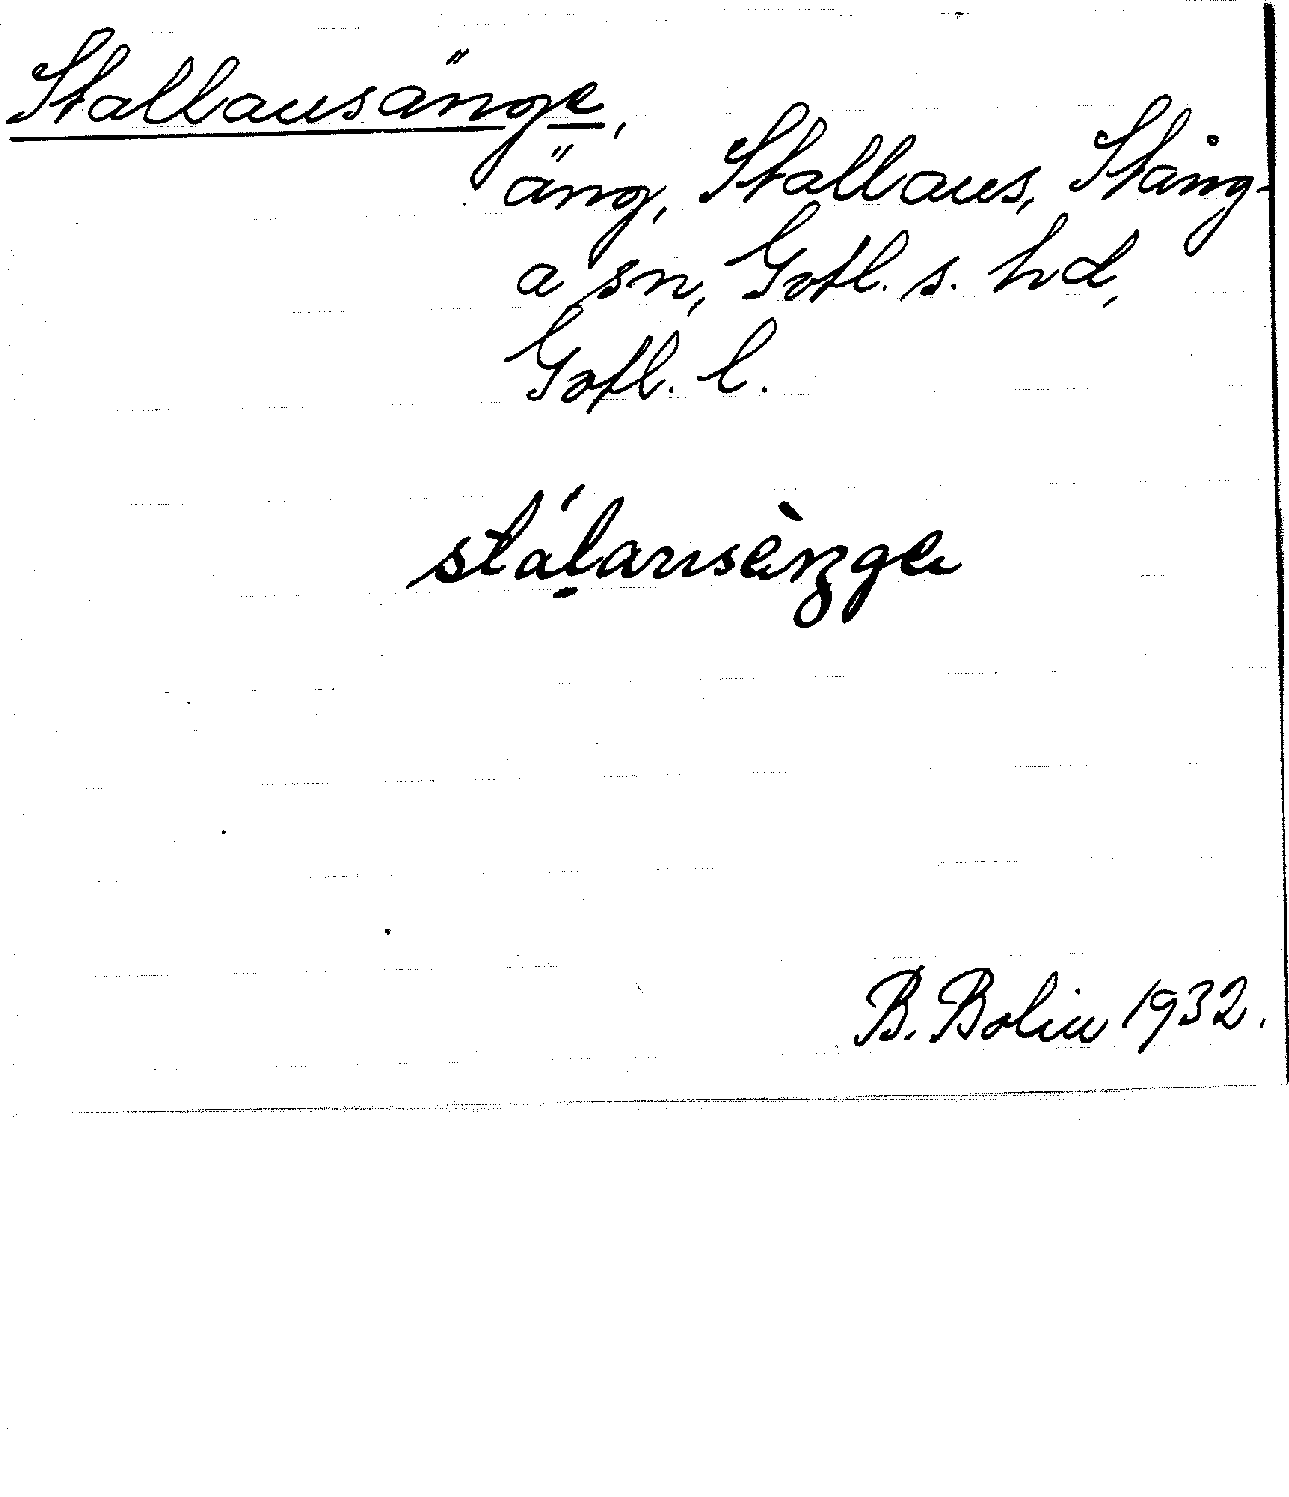 Stallausänge,
äng, Stallaus, Stång-
a sn, Gotl. s. hd,
Gotl. l.
stá̤lausèŋgə
B. Bolin 1932.